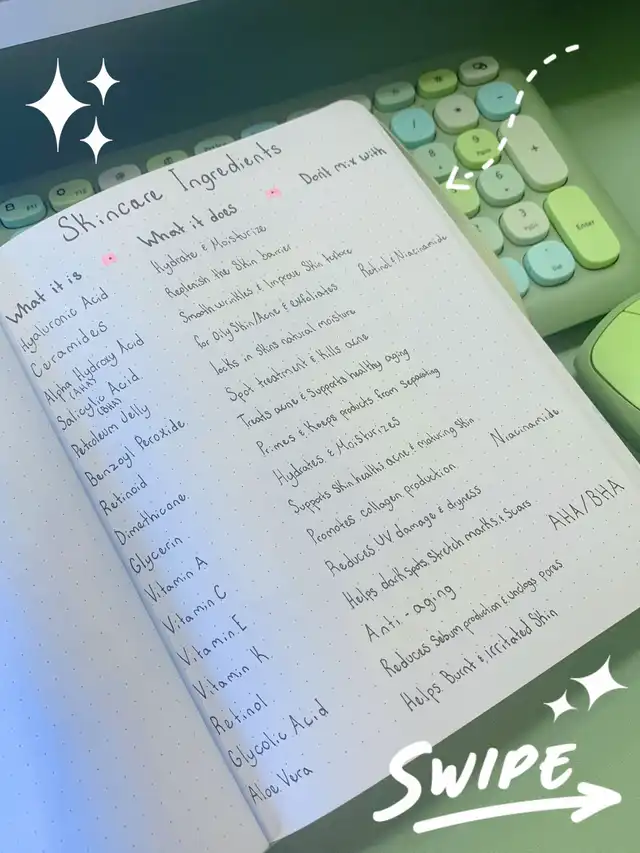 Skincare Ingredients
What it is What it does Don't mix with
Hyaluronic Acid Hydrate & Moisturize
Ceramides Replenish the Skin barrier
Alpha Hydroxy Acid Smooth wrinkles & Improve Skin texture Retinol & Niacinamide
(AHA)
Salicylic Acid for Oily Skin/Acne & exfoliates
(BHA)
Petroleum Jelly locks in Skins natural moisture
Benzoyl Peroxide Spot treatment & Kills acne
Retinoid Treats acne & Supports healthy aging
Dimethicone Primes & Keeps products from separating
Glycerin Hydrates & Moisturizes
Vitamin A Supports Skin health & acne & maturing Skin
Vitamin C Promotes collagen production Niacinamide
Vitamin E Reduces UV damage & dryness
Vitamin K Helps dark spots, Stretch marks, & Scars
Retinol Anti-aging AHA/BHA
Glycolic Acid Reduces Sebum production & unclogs pores
Aloe Vera Helps Burnt & irritated Skin
Enter
SWIPE